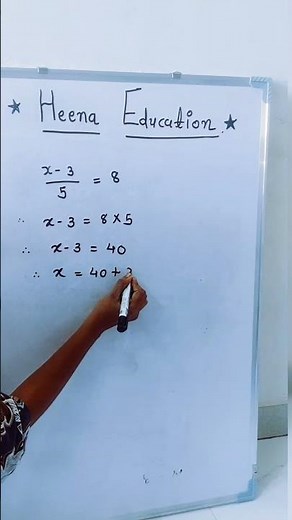 ★ Heena Education ★
x - 3 / 5 = 8
∴ x - 3 = 8 × 5
∴ x - 3 = 40
∴ x = 40 + 3